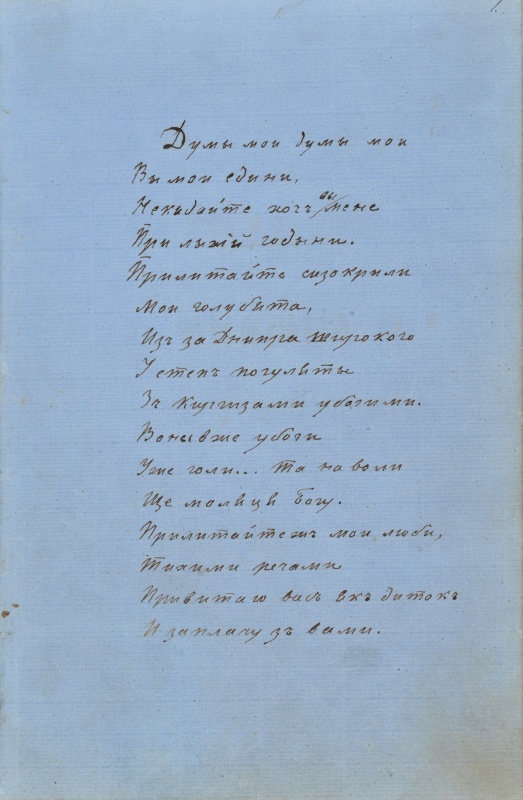 1.
Думы мои думы мои
Вы мои едини,
Некыдайте хочъ вы мене
При лыхій годыни.
Прилитайте сизокрили
Мои голубята,
Изъ за Днипра широкого
У степъ погуляты
Зъ киргизами убогими.
Воны вже убоги
Уже голи... та на воли
Ще моляця Богу.
Прилитайтежъ мои люби,
Тихими речами
Привитаю васъ якъ дитокъ
И заплачу зъ вами.